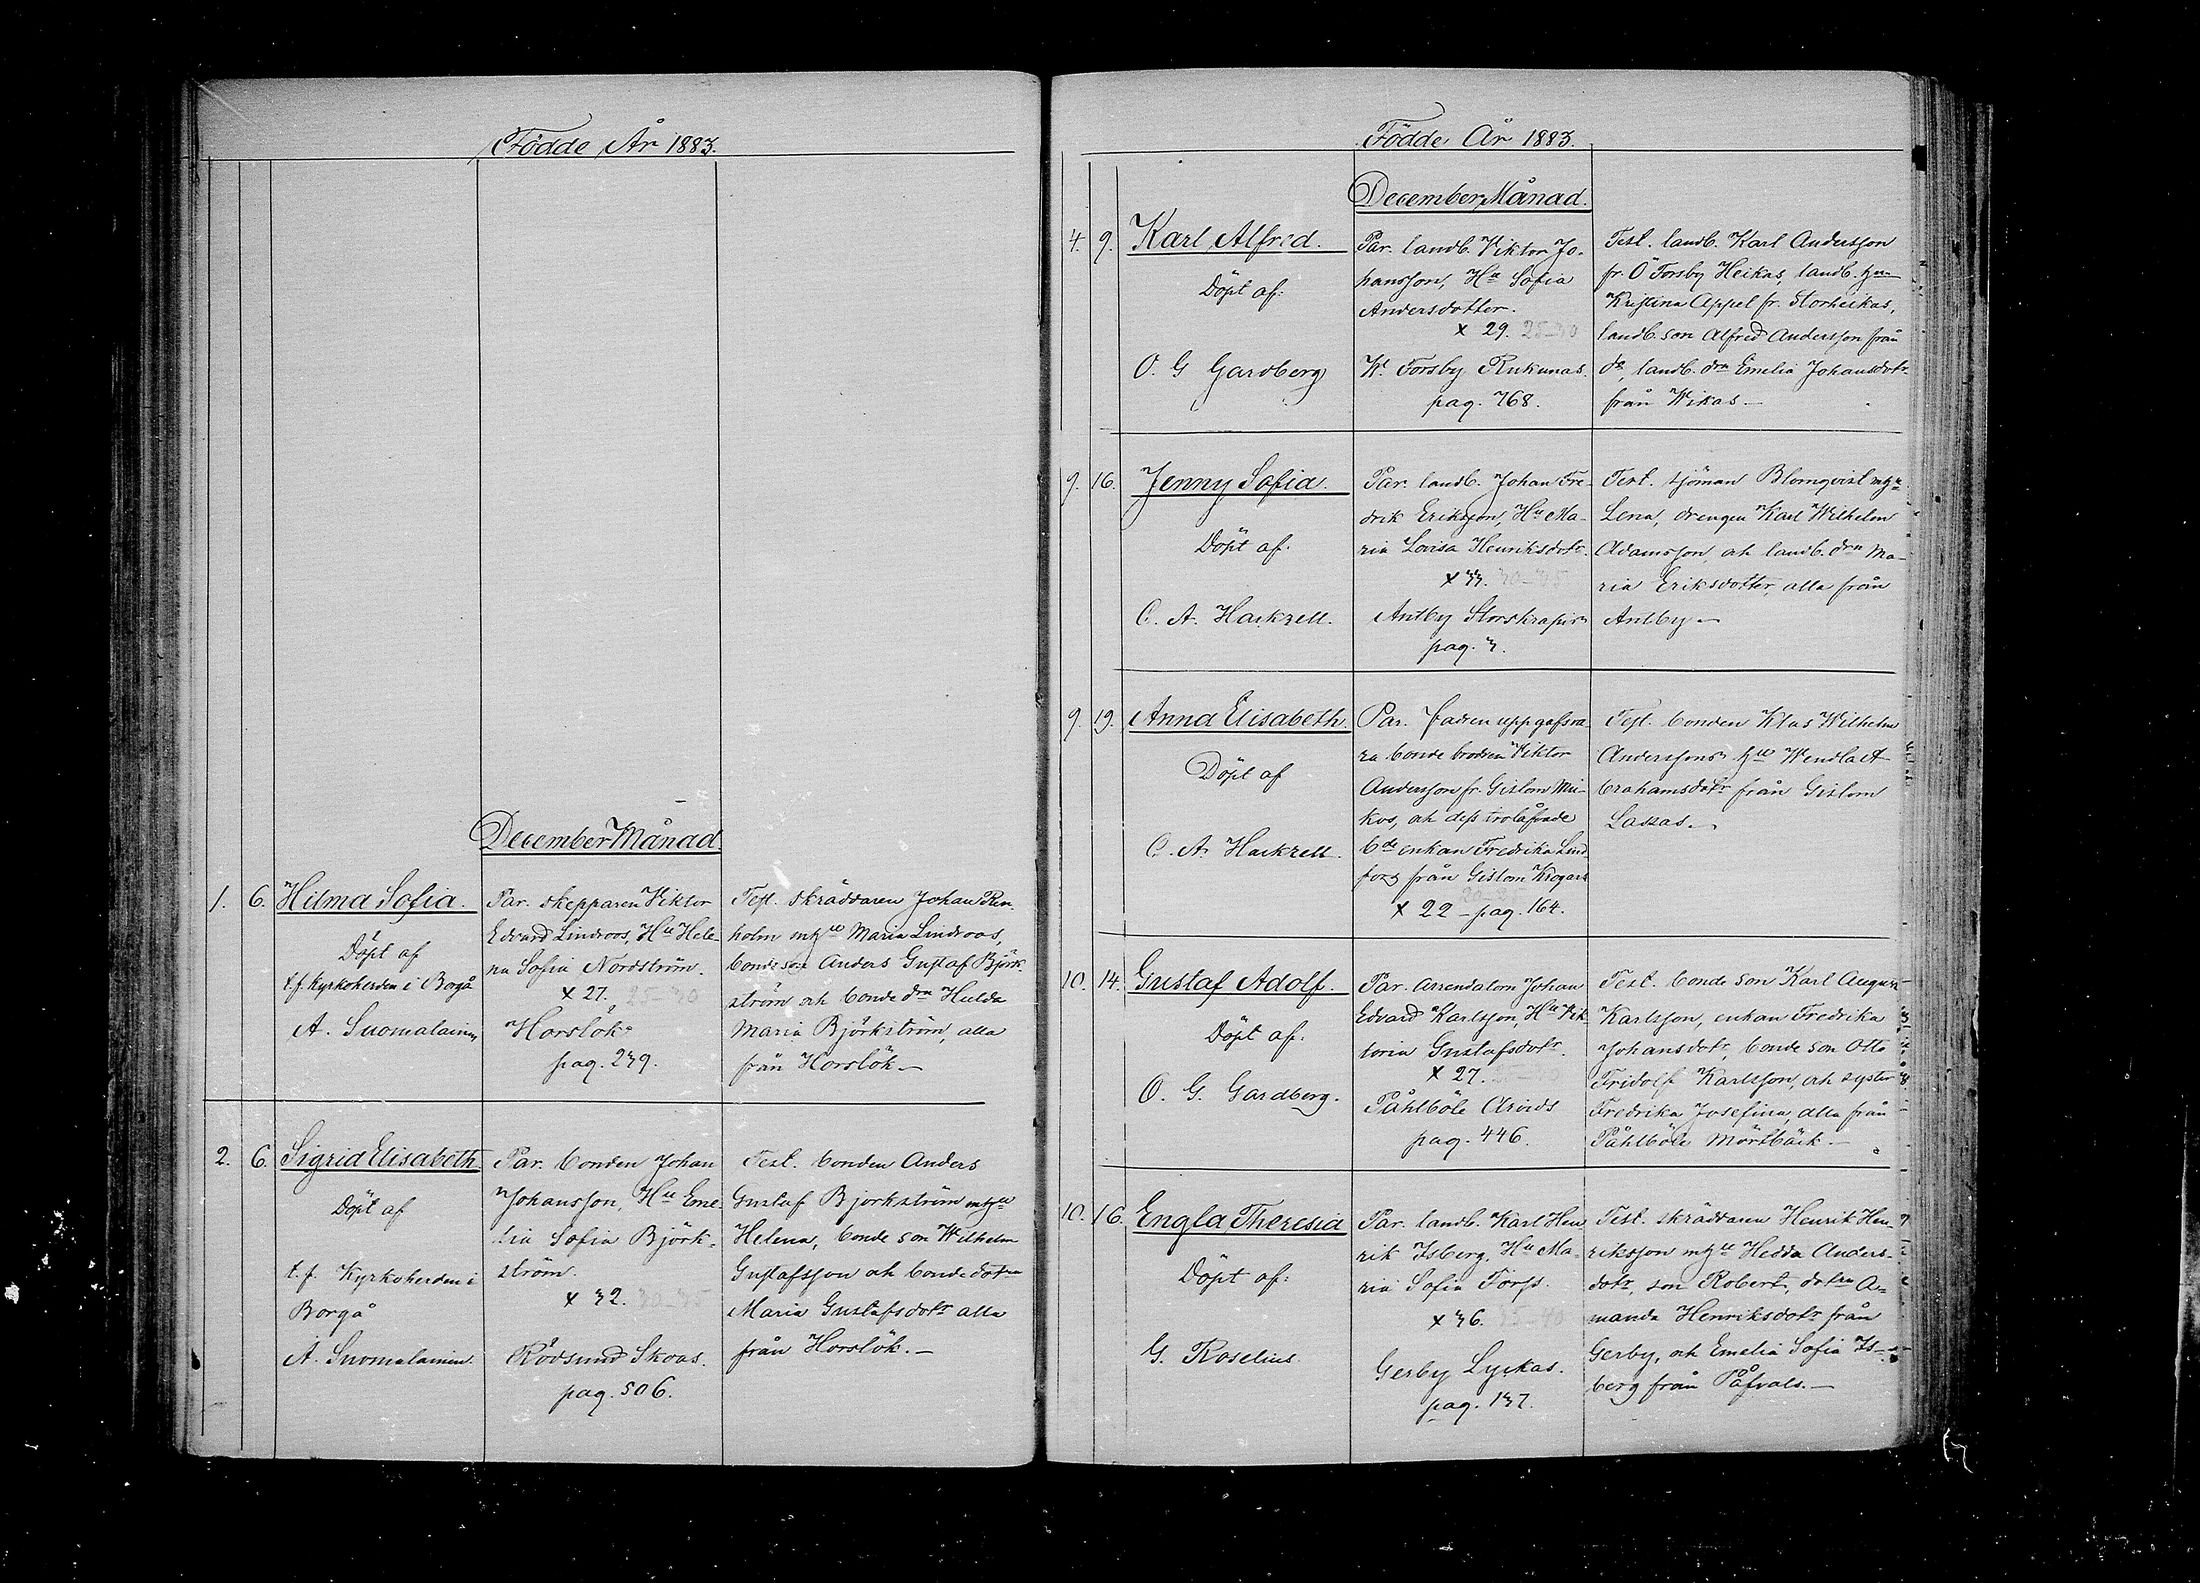 Födde År 1883.
December Månad
1. 6. Hilma Sofia.
Döpt af
t.f. Kyrkoherden i Borgå
A. Suomalainen
Par. skepparen Viktor
Edvard Lindroos, Hu Hele-
na Sofia Nordström.
x 27. 25-30
Horslök
pag. 239.
Test. skräddaren Johan Ren-
holm m hu Maria Lindroos,
bondeson Anders Gustaf Björk-
ström och bonde drn Hulda
Maria Björkström, alla
från Horslök.—
2. 6. Sigrid Elisabeth
Döpt af
t.f. Kyrkoherden i
Borgå
A. Suomalainen.
Par. bonden Johan
Johansson, Hu Eme-
lia Sofia Björk-
ström.
x 32. 30-35
Rödsund Skoas.
pag. 506.
Test. bonden Anders
Gustaf Björkström m hu
Helena, bonde son Wilhelm
Gustafsson och bonde dotn
Maria Gustafsdotr alla
från Horslök.—
Födde År 1883.
December Månad.
4. 9. Karl Alfred.
Döpt af:
O. G Gardberg
Par. landb. Viktor Jo-
hansson, Hu Sofia
Andersdotter.
x 29. 25-30
W. Forsby Rukunas.
pag. 768.
Test. landb. Karl Andersson
fr. Ö Forsby Heikas, landb. hu
Kristina Appel fr. Storheikas,
landb. son Alfred Andersson från
do, landb. drn Emelia Johansdotr
från Wikas.—
9. 16. Jenny Sofia.
Döpt af.
C. A. Hackzell.
Par. landb. Johan Fre-
drik Eriksson, Hu Ma-
ria Lovisa Henriksdotr.
x 33. 30-35
Antby Storskrapirs
pag. 3.
Test. sjöman Blomqvist m hu
Lena, drengen Karl Wilhelm
Adamsson, och landb. drn Ma-
ria Eriksdotter, alla från
Antby.—
9. 19. Anna Elisabeth.
Döpt af
C. A. Hackzell.
Par. fadren uppgafs va-
ra bonde brodren Viktor
Andersson fr. Gislom Mic-
kos, och dess trolåfvade
bde enkan Fredrika Lind-
fors från Gislom Krogars
x 22 — pag. 164.
Test. bonden Klas Wilhelm
Anderssons hu Wendla A-
brahamsdotr från Gislom
Lassas.—
10. 14. Gustaf Adolf.
Döpt af.
O. G. Gardberg.
Par. arrendatorn Johan
Edvard Karlsson, Hu Vik-
toria Gustafsdotr.
x 27.
Påhlböle Arvids
pag. 446.
Test. bonde son Karl August
Karlsson, enkan Fredrika
Johansdotr, bonde son Otto
Fridolf Karlsson, och syster
Fredrika Josefina, alla från
Påhlböle Mörtbäck.—
10. 16. Engla Theresia
Döpt af:
G. Roselius
Par. landb. Karl Hen
rik Isberg, Hu Ma-
ria Sofia Forss.
x 36. 35-40
Gerby Lyckas.
pag. 137.
Test. skräddaren Henrik Hen-
riksson m hu Hedda Anders-
dotr, son Robert, dotrn A-
manda Henriksdotr från
Gerby, och Emelia Sofia Is-
berg från Påfvals.—